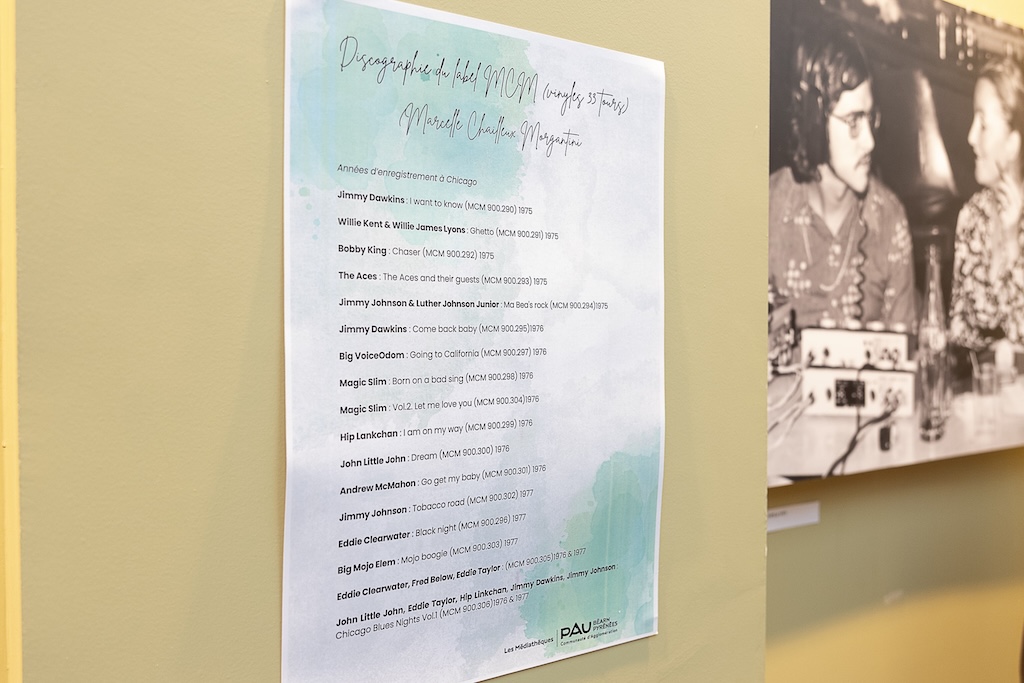 Discographie du label MCM (vinyles 33 tours)
Marcelle Chailleux Morgantini
Années d'enregistrement à Chicago
Jimmy Dawkins : I want to know (MCM 900.290) 1975
Willie Kent & Willie James Lyons : Ghetto (MCM 900.291) 1975
Bobby King : Chaser (MCM 900.292) 1975
The Aces : The Aces and their guests (MCM 900.293) 1975
Jimmy Johnson & Luther Johnson Junior : Ma Bea's rock (MCM 900.294)1975
Jimmy Dawkins : Come back baby (MCM 900.295)1976
Big VoiceOdom : Going to California (MCM 900.297) 1976
Magic Slim : Born on a bad sing (MCM 900.298) 1976
Magic Slim : Vol.2. Let me love you (MCM 900.304)1976
Hip Lankchan : I am on my way (MCM 900.299) 1976
John Little John : Dream (MCM 900.300) 1976
Andrew McMahon : Go get my baby (MCM 900.301) 1976
Jimmy Johnson : Tobacco road (MCM 900.302) 1977
Eddie Clearwater : Black night (MCM 900.296) 1977
Big Mojo Elem : Mojo boogie (MCM 900.303) 1977
Eddie Clearwater, Fred Below, Eddie Taylor : (MCM 900.305)1976 & 1977
John Little John, Eddie Taylor, Hip Linkchan, Jimmy Dawkins, Jimmy Johnson :
Chicago Blues Nights Vol.1 (MCM 900.306)1976 & 1977
Les Médiathèques
PAU BÉARN PYRÉNÉES
Communauté d'Agglomération